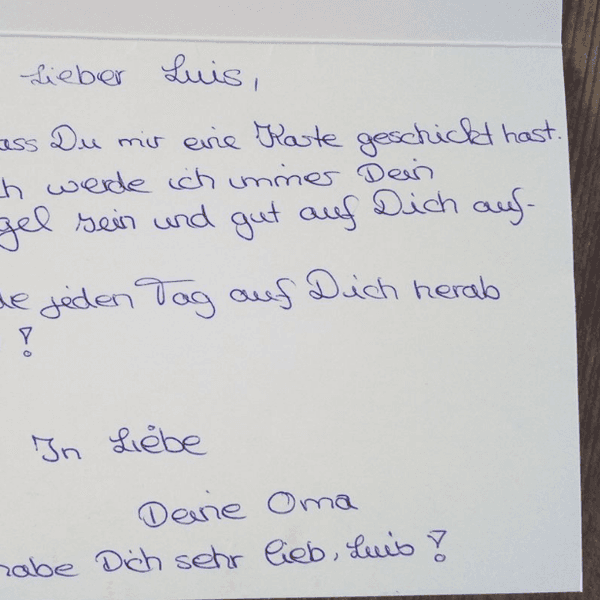 Lieber Luis,
ass Du mir eine Karte geschickt hast.
h werde ich immer Dein
gel sein und gut auf Dich auf-
de jeden Tag auf Dich herab
!
In Liebe
Deine Oma
habe Dich sehr lieb, Luis!